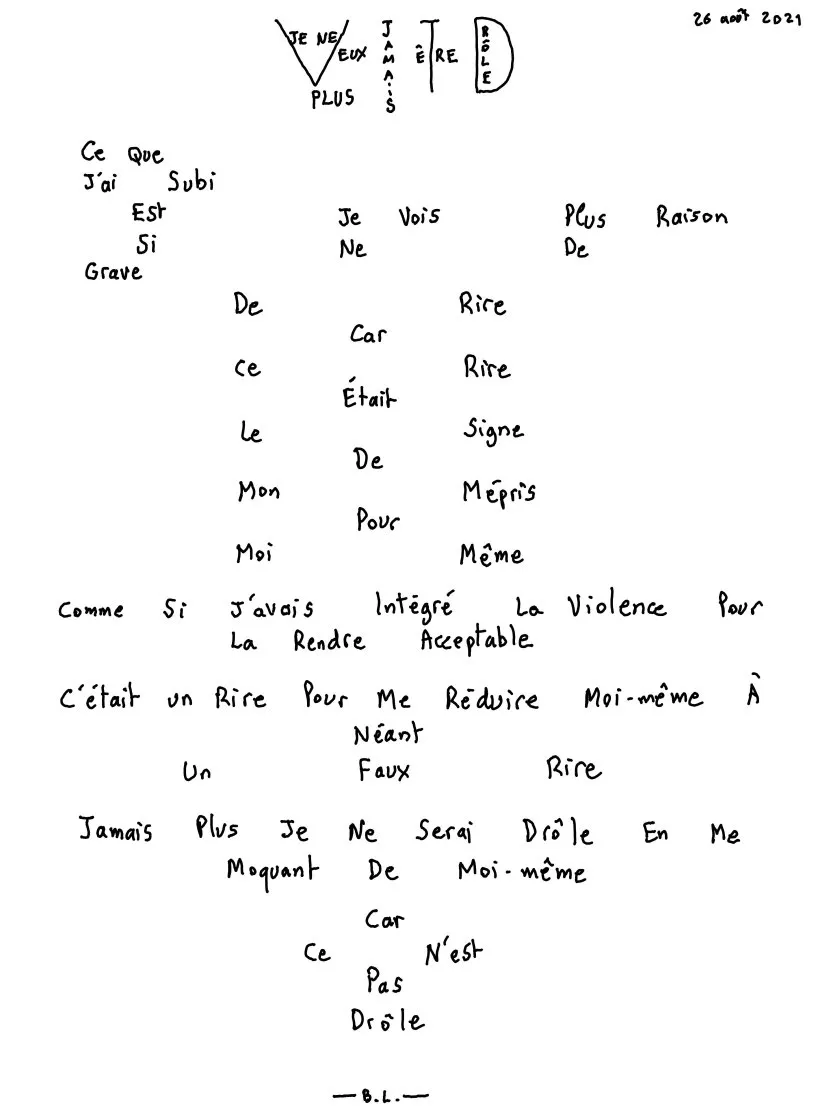 26 août 2021
JE NE VEUX PLUS JAMAIS ÊTRE DRÔLE
Ce Que
J'ai Subi
Est Je Vois Plus Raison
Si Ne De
Grave
De Rire
Car
Ce Rire
Était
Le Signe
De
Mon Mépris
Pour
Moi Même
Comme Si J'avais Intégré La Violence Pour
La Rendre Acceptable
C'était un Rire Pour Me Réduire Moi-même À
Néant
Un Faux Rire
Jamais Plus Je Ne Serai Drôle En Me
Moquant De Moi-même
Car
Ce N'est
Pas
Drôle
—B.L.—